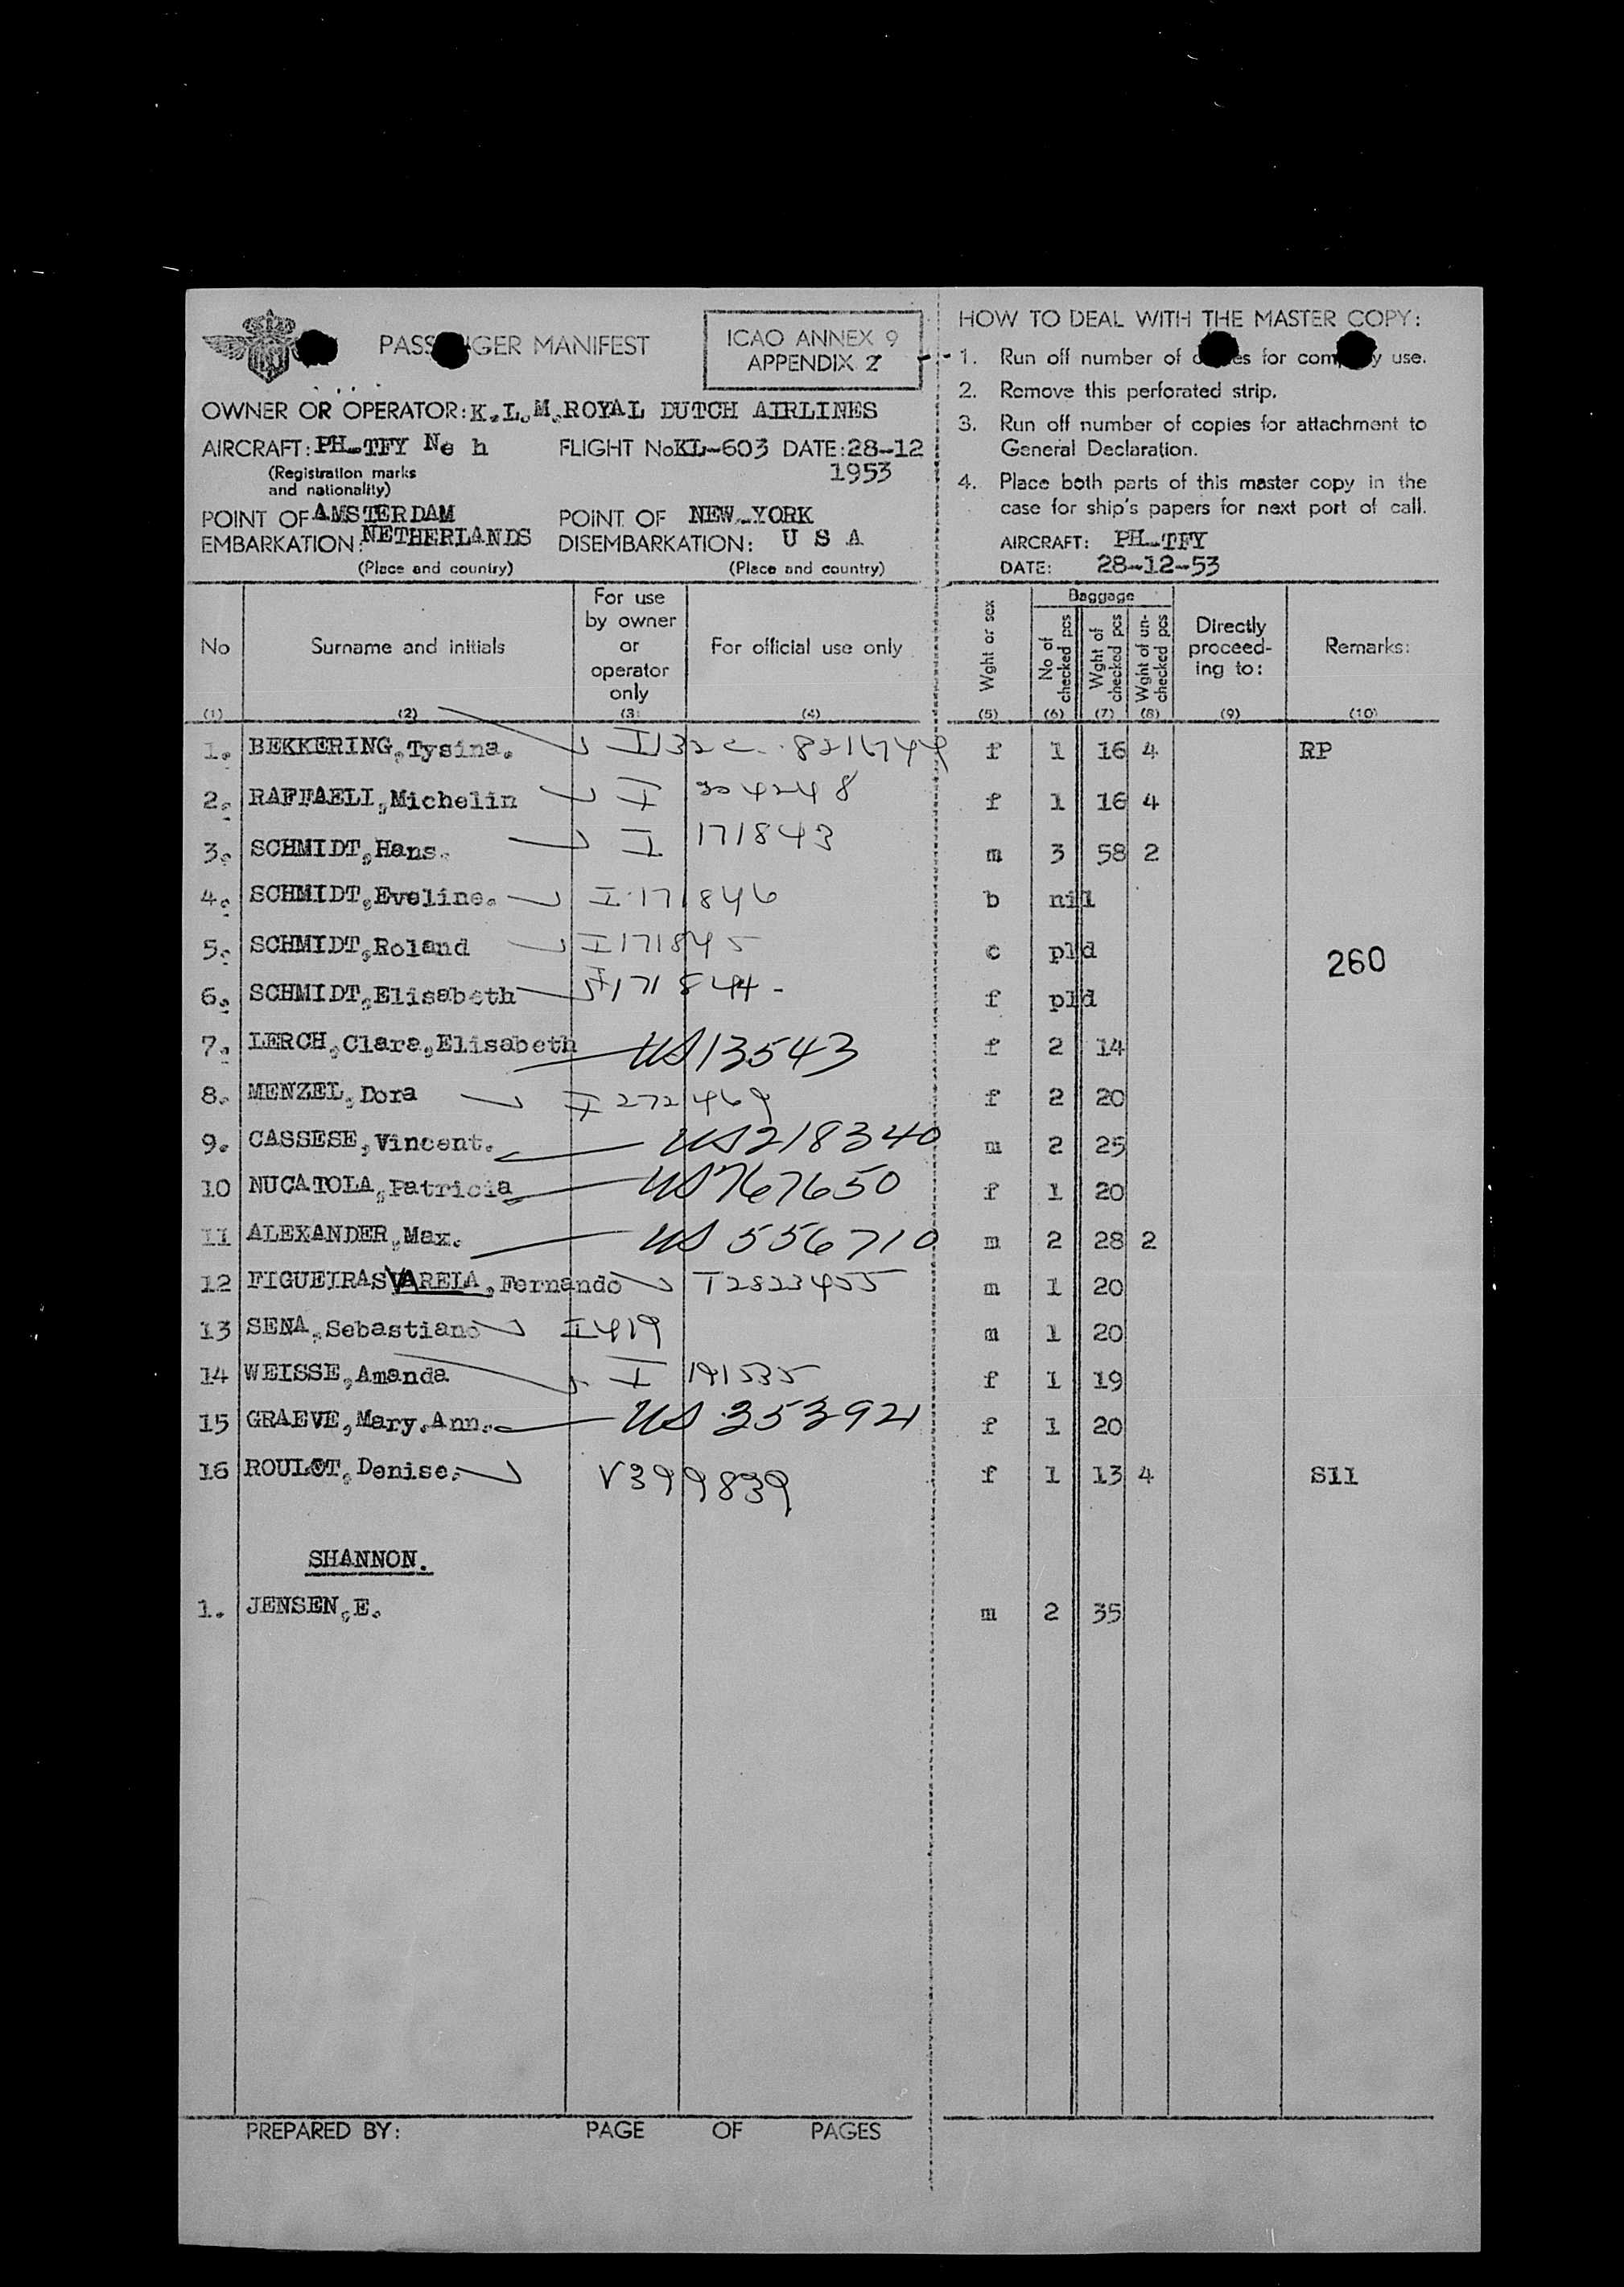 PASSENGER MANIFEST
ICAO ANNEX 9
APPENDIX 2
OWNER OR OPERATOR: K.L.M.ROYAL DUTCH AIRLINES
AIRCRAFT: PH-TFY Ne h FLIGHT No KL-603 DATE: 28-12
1953
(Registration marks
and nationality)
POINT OF AMSTERDAM POINT OF NEW-YORK
EMBARKATION: NETHERLANDS DISEMBARKATION: U S A
(Place and country) (Place and country)
HOW TO DEAL WITH THE MASTER COPY:
1. Run off number of copies for company use.
2. Remove this perforated strip.
3. Run off number of copies for attachment to
General Declaration.
4. Place both parts of this master copy in the
case for ship's papers for next port of call.
AIRCRAFT: PH-TFY
DATE: 28-12-53
No Surname and initials For use by owner or operator only For official use only Wght or sex Baggage No of checked pcs Wght of checked pcs Wght of un-checked pcs Directly proceed-ing to: Remarks:
(1) (2) (3) (4) (5) (6) (7) (8) (9) (10)
1. BEKKERING,Tysina. f 1 16 4 RP
2. RAFFAELI,Michelin I 204248 f 1 16 4
3. SCHMIDT,Hans. I 171843 m 3 58 2
4. SCHMIDT,Eveline. I 171846 b nil
5. SCHMIDT,Roland I 171845 c pld
260
6. SCHMIDT,Elisabeth I 171844 - f pld
7. LERCH,Clara,Elisabeth US 13543 f 2 14
8. MENZEL,Dora I 272469 f 2 20
9. CASSESE,Vincent. US 218340 m 2 25
10 NUCATOLA,Patricia US 767650 f 1 20
11 ALEXANDER,Max. US 556710 m 2 28 2
12 FIGUEIRAS VARELA,Fernando I2823455 m 1 20
13 SENA,Sebastiano I 419 m 1 20
14 WEISSE,Amanda I 191535 f 1 19
15 GRAEVE,Mary.Ann. US 353921 f 1 20
16 ROULOT,Denise. V399839 f 1 13 4 S11
SHANNON.
1. JENSEN,E. m 2 35
PREPARED BY: PAGE OF PAGES